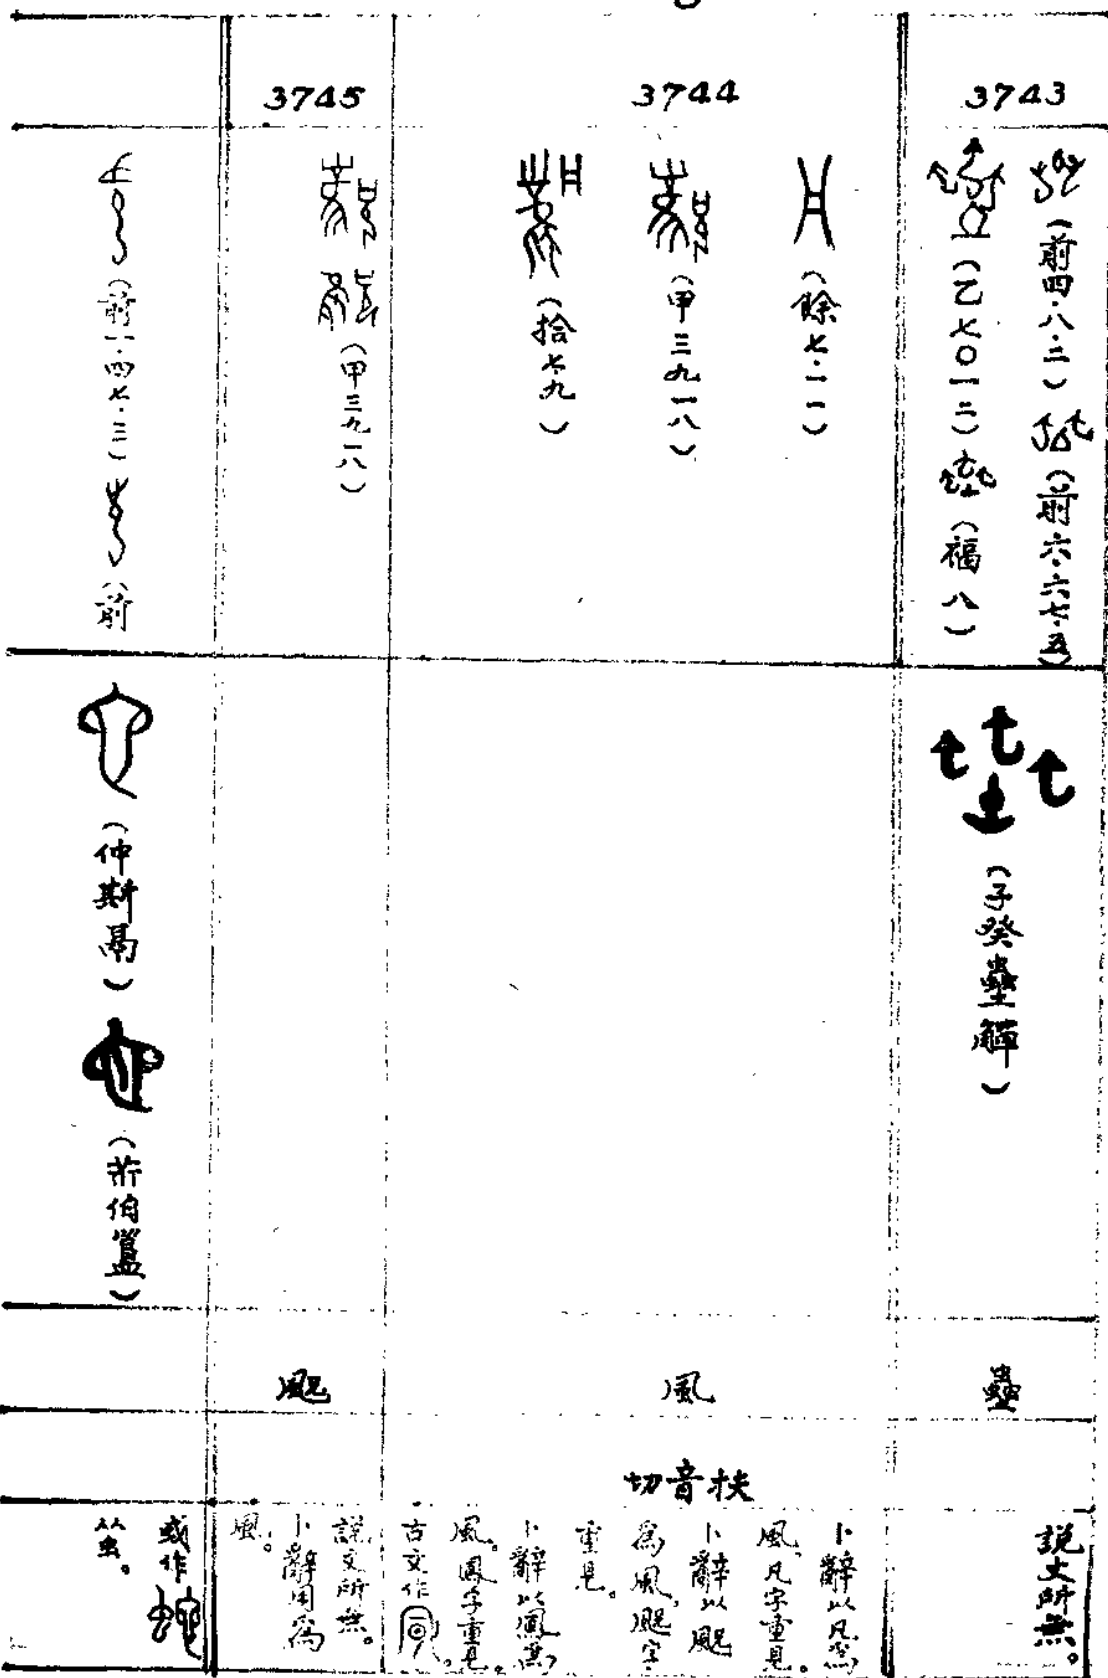 3743
(前四·八·二)
(前六·六七·五)
(乙七〇一二)
(福八)
(子癸蠱觶)
說文所無。
3744
(餘七·一一)
(甲三九一八)
(拾七·九)
風
扶音切
卜辭以凡爲
風,凡字重見。
卜辭以䫻
爲風,䫻字
重見。
卜辭以鳳爲
風。鳳字重見。
古文作
3745
(甲三九一八)
䫻
說文所無。
卜辭用爲
風。
(前一·四七·三)
(前
(仲斯鬲)
伯簋)
或作
从虫。